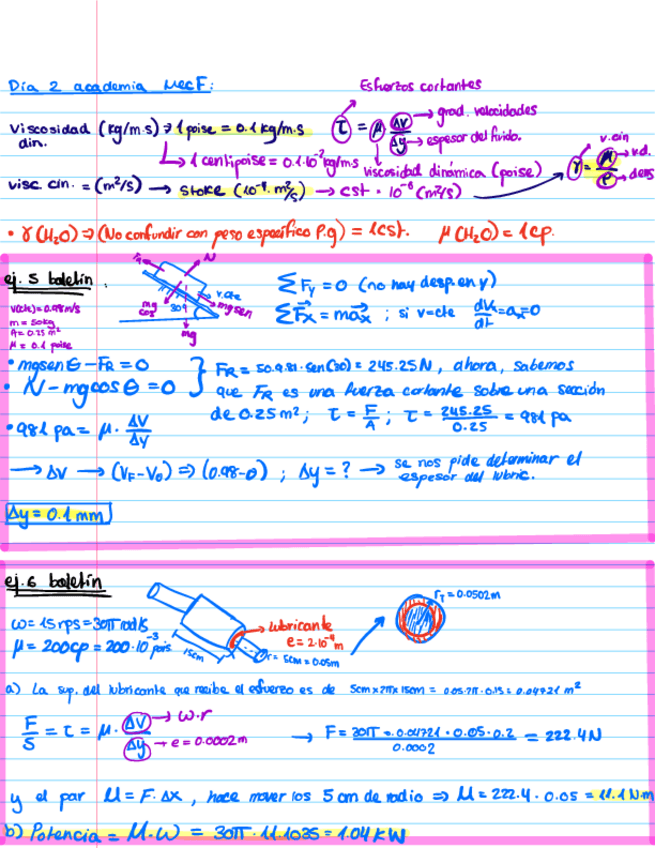 Día 2 academia MecF:
Esfuerzos cortantes
viscosidad (kg/m.s) → 1 poise = 0.1 kg/m.s
din.
τ = μ ΔV/Δy
→ grad. velocidades
→ espesor del fluido.
↳ 1 centipoise = 0.1·10⁻² kg/m.s
viscosidad dinámica (poise)
v. cin
γ = μ/ρ
→ v.d.
→ dens
visc. cin. = (m²/s) → stoke (10⁻⁴ m²/s) → cst · 10⁻⁶ (m²/s)
• γ (H₂O) ⇒ (No confundir con peso específico ρ.g) = 1cst. μ (H₂O) = 1cp.
ej. 5 boletín.
V(cte) = 0.98 m/s
m = 50kg
A = 0.25 m²
μ = 0.1 poise
N
mg cos
30º
mg sen
mg
ΣFy = 0 (no hay desp. en y)
ΣFx = max ; si v=cte dVx/dt = ax = 0
• mgsen θ - FR = 0
• N - mg cos θ = 0
FR = 50·9.81·sen(30) = 245.25 N, ahora, sabemos
que FR es una fuerza cortante sobre una sección
de 0.25 m² ; τ = F/A ; τ = 245.25/0.25 = 981 pa
• 981 pa = μ · ΔV/Δy
→ ΔV → (VF - V0) ⇒ (0.98 - 0) ; Δy = ? → se nos pide determinar el
espesor del lubric.
Δy = 0.1 mm
ej. 6 boletín
ω = 15 rps = 30π rad/s
μ = 200cp = 200·10⁻³ pois.
15cm
lubricante
e = 2·10⁻⁴ m
r = 5cm = 0.05m
rT = 0.0502m
a) La sup. del lubricante que recibe el esfuerzo es de 5cm×2π×15cm = 0.05·2π·0.15 = 0.04721 m²
F/S = τ = μ · ΔV/Δy
→ ω·r
→ e = 0.0002m
→ F = 30π · 0.04721 · 0.05 · 0.2 / 0.0002 = 222.4N
y el par M = F·Δx, hace mover los 5 cm de radio ⇒ M = 222.4 · 0.05 = 11.1 N·m
b) Potencia = M·ω = 30π · 11.1035 = 1.04 kW